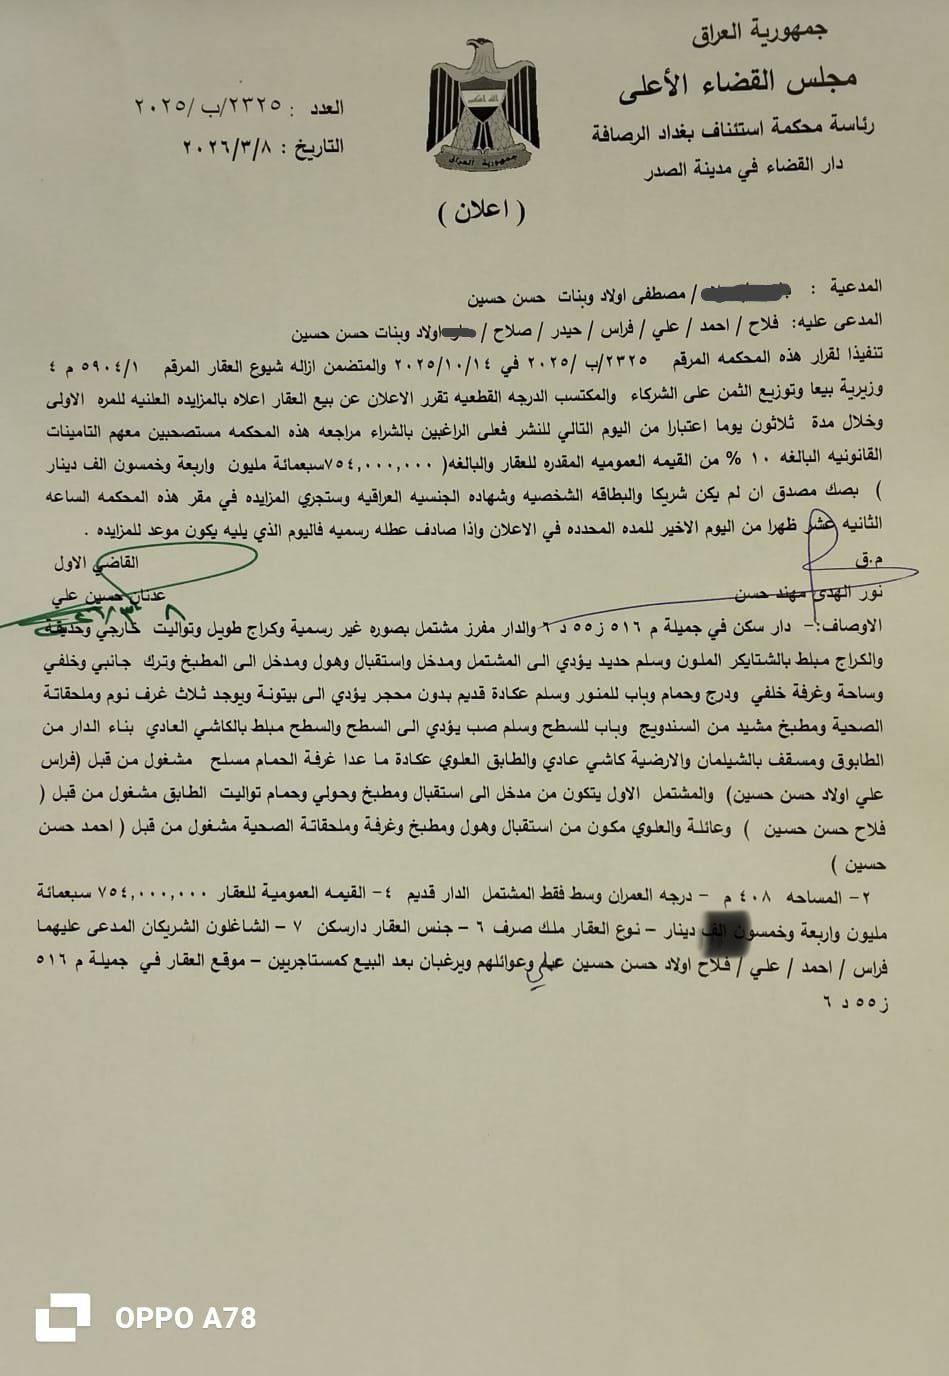 جمهورية العراق
مجلس القضاء الأعلى
رئاسة محكمة استئناف بغداد الرصافة
دار القضاء في مدينة الصدر
العدد : ٢٣٢٥/ب /٢٠٢٥
التاريخ : ٢٠٢٦/٣/٨
جمهورية العراق
( اعلان )
المدعية : / مصطفى اولاد وبنات حسن حسين
المدعى عليه: فلاح / احمد / علي / فراس / حيدر / صلاح / اولاد وبنات حسن حسين
تنفيذا لقرار هذه المحكمه المرقم ٢٣٢٥/ب /٢٠٢٥ في ٢٠٢٥/١٠/١٤ والمتضمن ازاله شيوع العقار المرقم ٥٩٠٤/١ م ٤
وزيرية بيعا وتوزيع الثمن على الشركاء والمكتسب الدرجه القطعيه تقرر الاعلان عن بيع العقار اعلاه بالمزايده العلنيه للمره الاولى
وخلال مدة ثلاثون يوما اعتبارا من اليوم التالي للنشر فعلى الراغبين بالشراء مراجعه هذه المحكمه مستصحبين معهم التامينات
القانونيه البالغه ١٠ % من القيمه العموميه المقدره للعقار والبالغه( ٧٥٤,٠٠٠,٠٠٠سبعمائة مليون واربعة وخمسون الف دينار
) بصك مصدق ان لم يكن شريكا والبطاقه الشخصيه وشهاده الجنسيه العراقيه وستجري المزايده في مقر هذه المحكمه الساعه
الثانيه عشر ظهرا من اليوم الاخير للمده المحدده في الاعلان واذا صادف عطله رسميه فاليوم الذي يليه يكون موعد للمزايده .
م.ق
القاضي الاول
نور الهدى مهند حسن
عدنان حسين علي
الاوصاف:- دار سكن في جميلة م ٥١٦ ز٥٥ د ٦ والدار مفرز مشتمل بصوره غير رسمية وكراج طويل وتواليت خارجي وحديقة
والكراج مبلط بالشتايكر الملون وسلم حديد يؤدي الى المشتمل ومدخل واستقبال وهول ومدخل الى المطبخ وترك جانبي وخلفي
وساحة وغرفة خلفي ودرج وحمام وباب للمنور وسلم عكادة قديم بدون محجر يؤدي الى بيتونة ويوجد ثلاث غرف نوم وملحقاتة
الصحية ومطبخ مشيد من السندويج وباب للسطح وسلم صب يؤدي الى السطح والسطح مبلط بالكاشي العادي بناء الدار من
الطابوق ومسقف بالشيلمان والارضية كاشي عادي والطابق العلوي عكادة ما عدا غرفة الحمام مسلح مشغول من قبل (فراس
علي اولاد حسن حسين) والمشتمل الاول يتكون من مدخل الى استقبال ومطبخ وحولي وحمام تواليت الطابق مشغول من قبل (
فلاح حسن حسين ) وعائلة والعلوي مكون من استقبال وهول ومطبخ وغرفة وملحقاتة الصحية مشغول من قبل ( احمد حسن
حسين )
٢- المساحه ٤٠٨ م - درجه العمران وسط فقط المشتمل الدار قديم ٤- القيمه العمومية للعقار ٧٥٤,٠٠٠,٠٠٠ سبعمائة
مليون واربعة وخمسون الف دينار - نوع العقار ملك صرف ٦ - جنس العقار دارسكن ٧ - الشاغلون الشريكان المدعى عليهما
فراس / احمد / علي / فلاح اولاد حسن حسين وعوائلهم ويرغبان بعد البيع كمستاجرين - موقع العقار في جميلة م ٥١٦
ز ٥٥ د ٦
OPPO A78